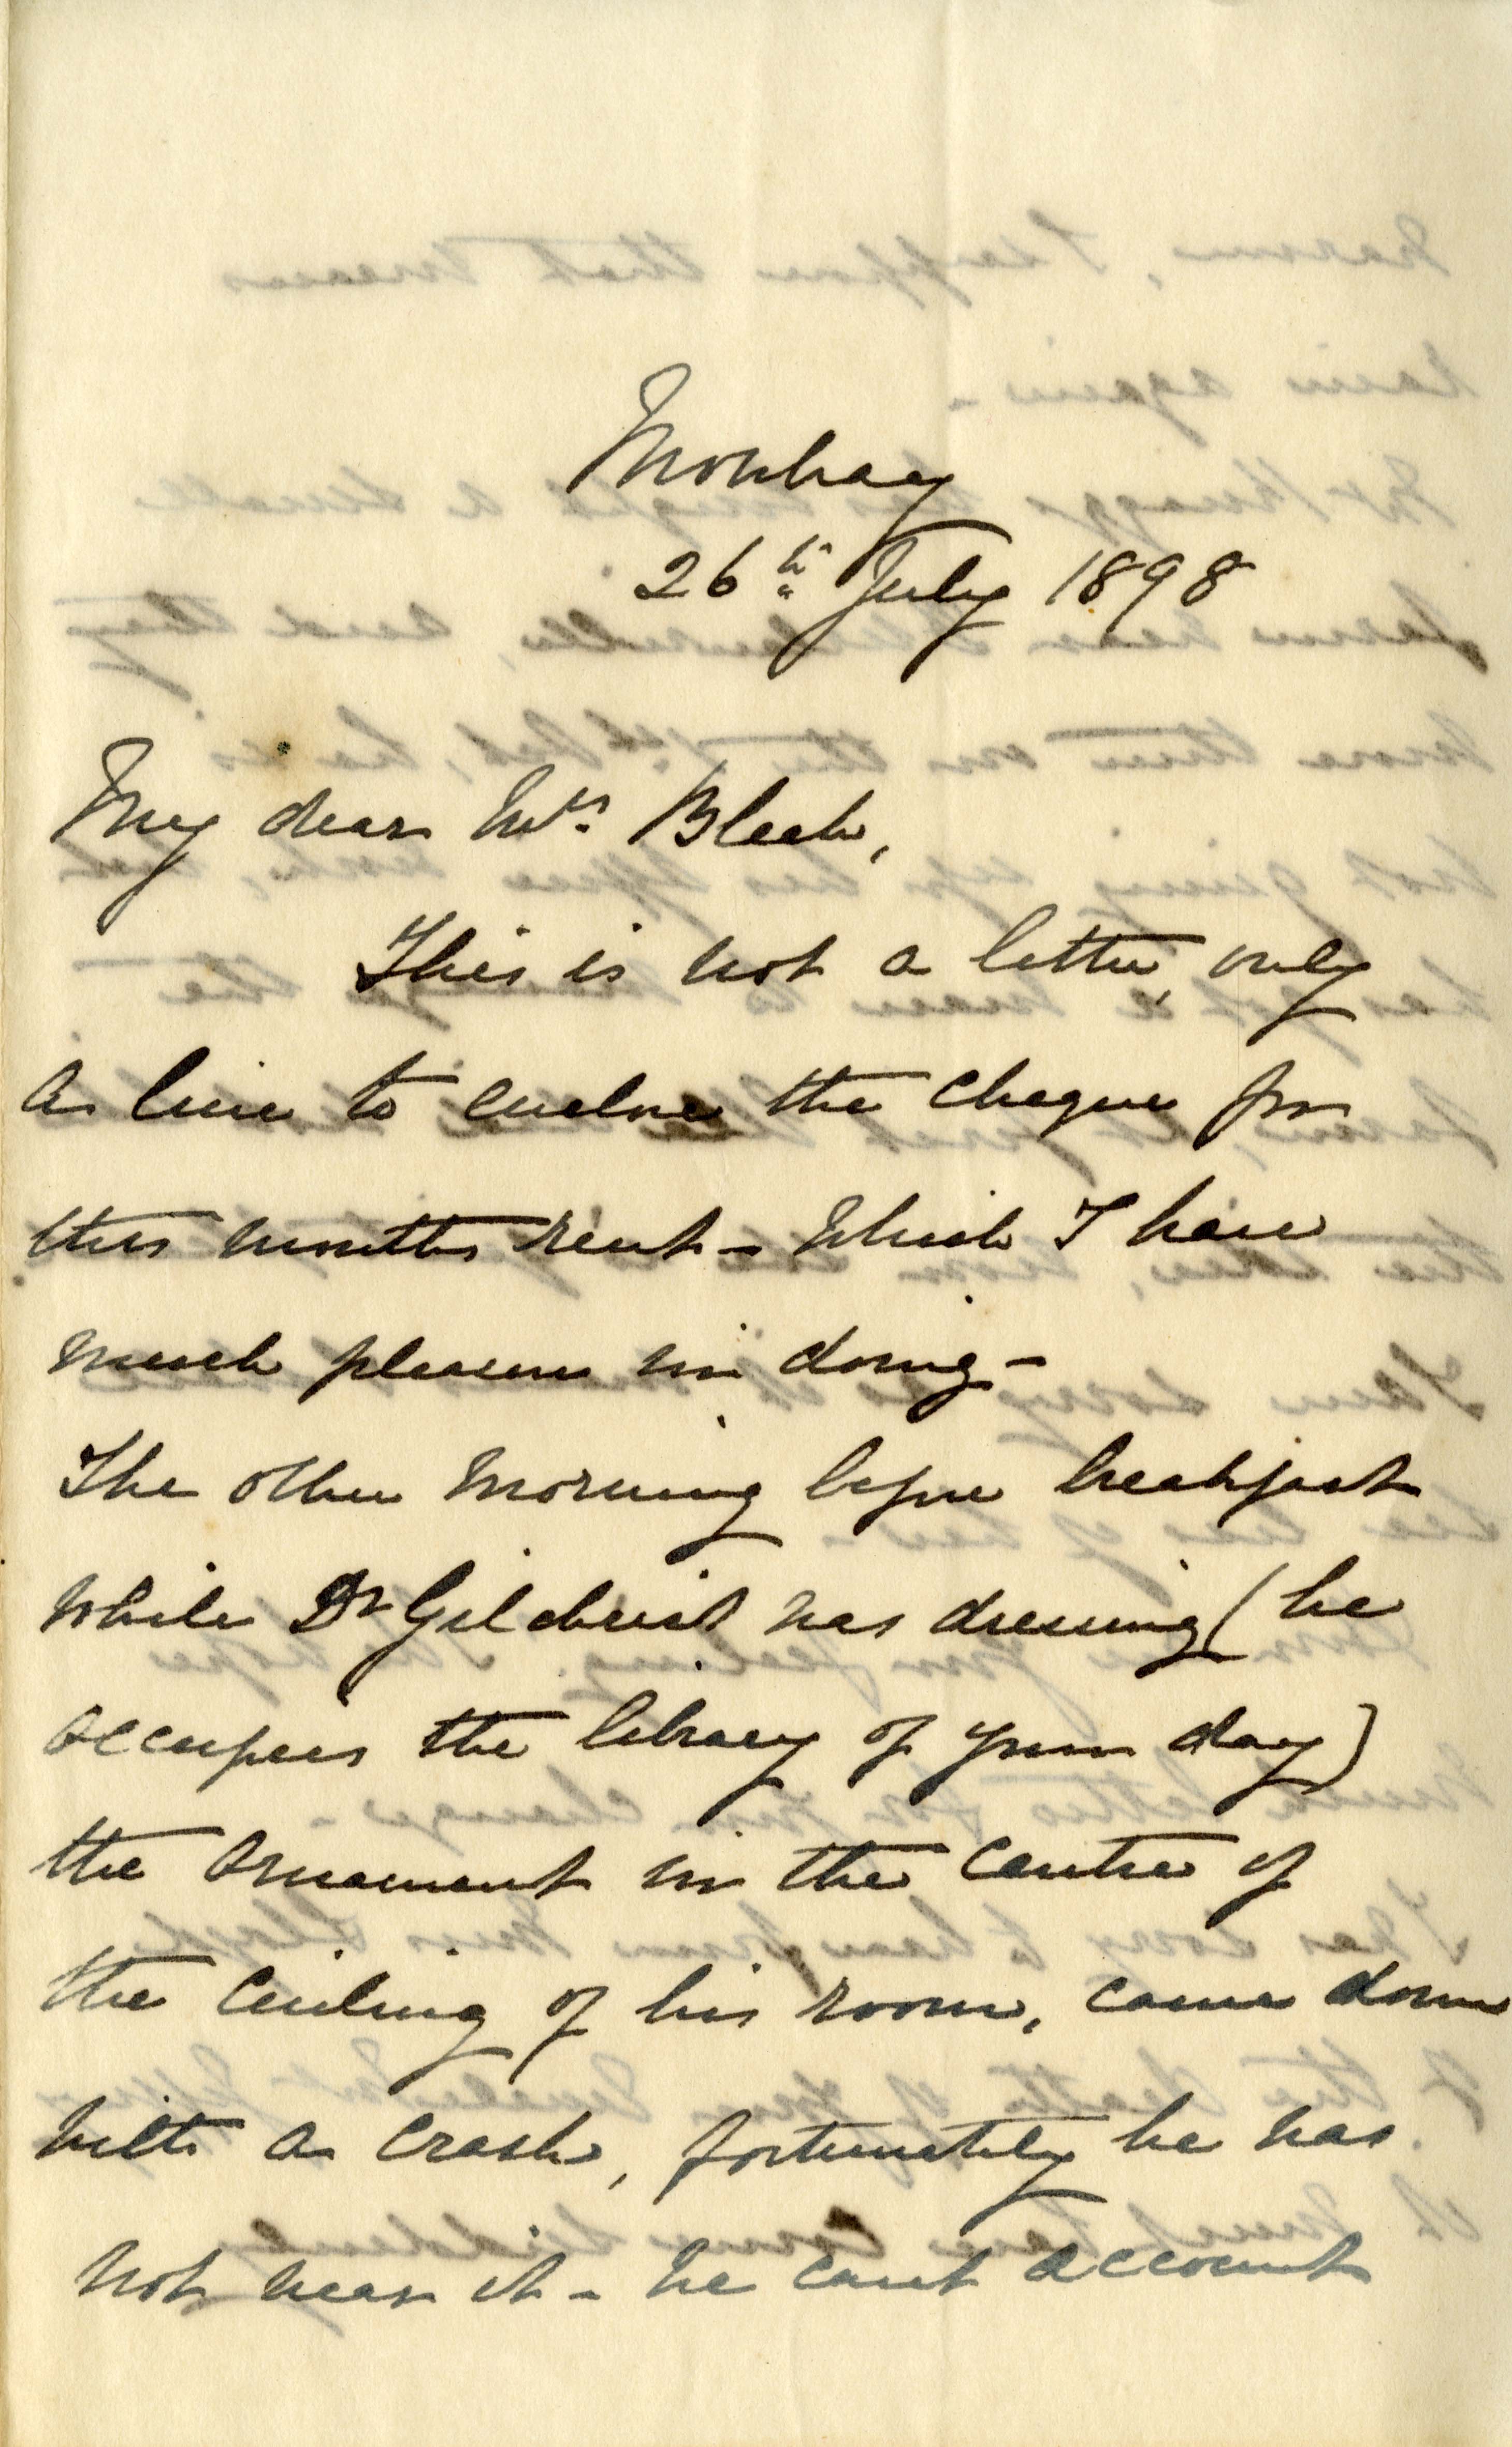 Mowbray
26th July 1898
My dear Mrs. Bleek,
This is not a letter, only
a line to enclose the cheque for
this months rent - which I have
much pleasure in doing -
The other morning before breakfast
while Dr Gilchrist was dressing (he
occupies the library of your day)
the ornament in the centre of
the ceiling of his room, came down
with a crash, fortunately he was
not near it - we cant account